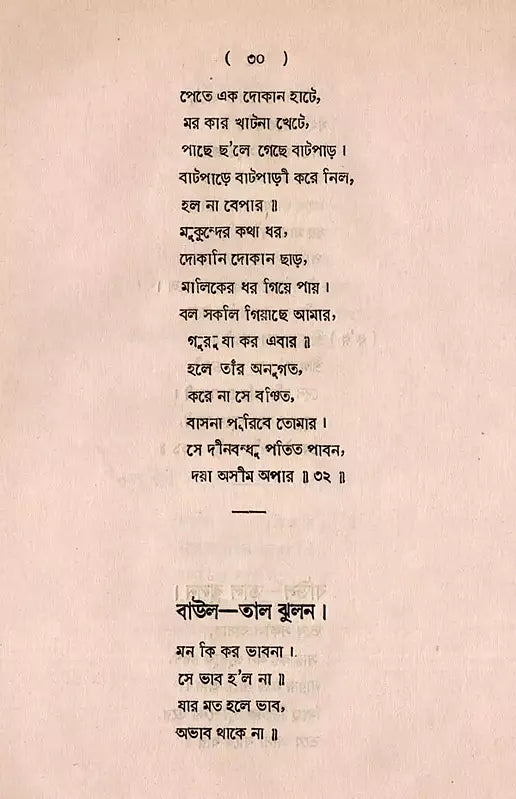 ( ৩০ )
পেতে এক দোকান হাটে,
মর কার খাটনা খেটে,
পাছে ছ'লে গেছে বাটপাড় ।
বাটপাড়ে বাটপাড়ী করে নিল,
হল না বেপার ॥
মুকুন্দের কথা ধর,
দোকানি দোকান ছাড়,
মালিকের ধর গিয়ে পায় ।
বল সকলি গিয়াছে আমার,
গুরু যা কর এবার ॥
হলে তাঁর অনুগত,
করে না সে বঞ্চিত,
বাসনা পুরিবে তোমার ।
সে দীনবন্ধু পতিত পাবন,
দয়া অসীম অপার ॥ ৩২ ॥
বাউল—তাল ঝুলন ।
মন কি কর ভাবনা ।
সে ভাব হ'ল না ॥
যার মত হলে ভাব,
অভাব থাকে না ॥